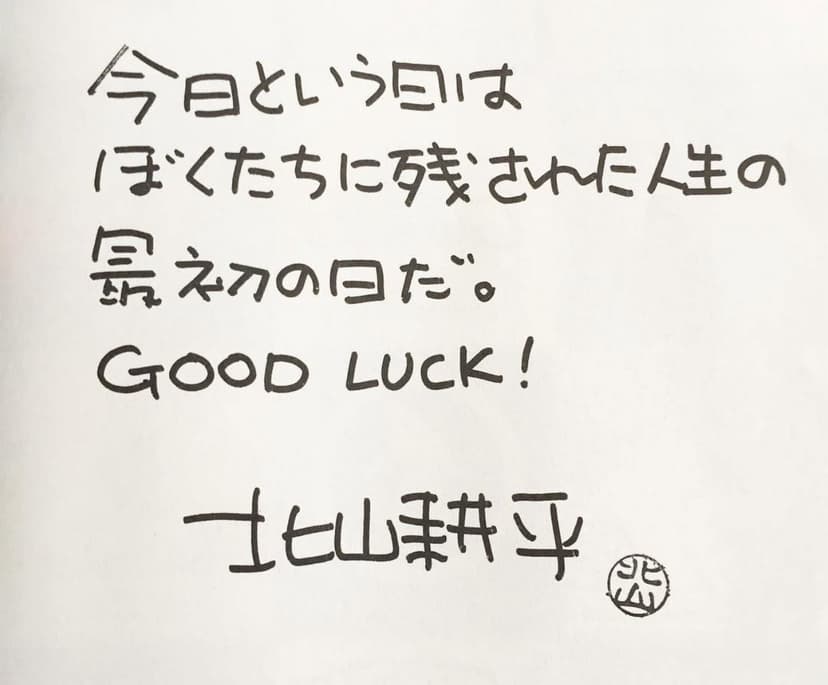 今日という日は
ぼくたちに残された人生の
最初の日だ。
GOOD LUCK!
北山耕平
北山